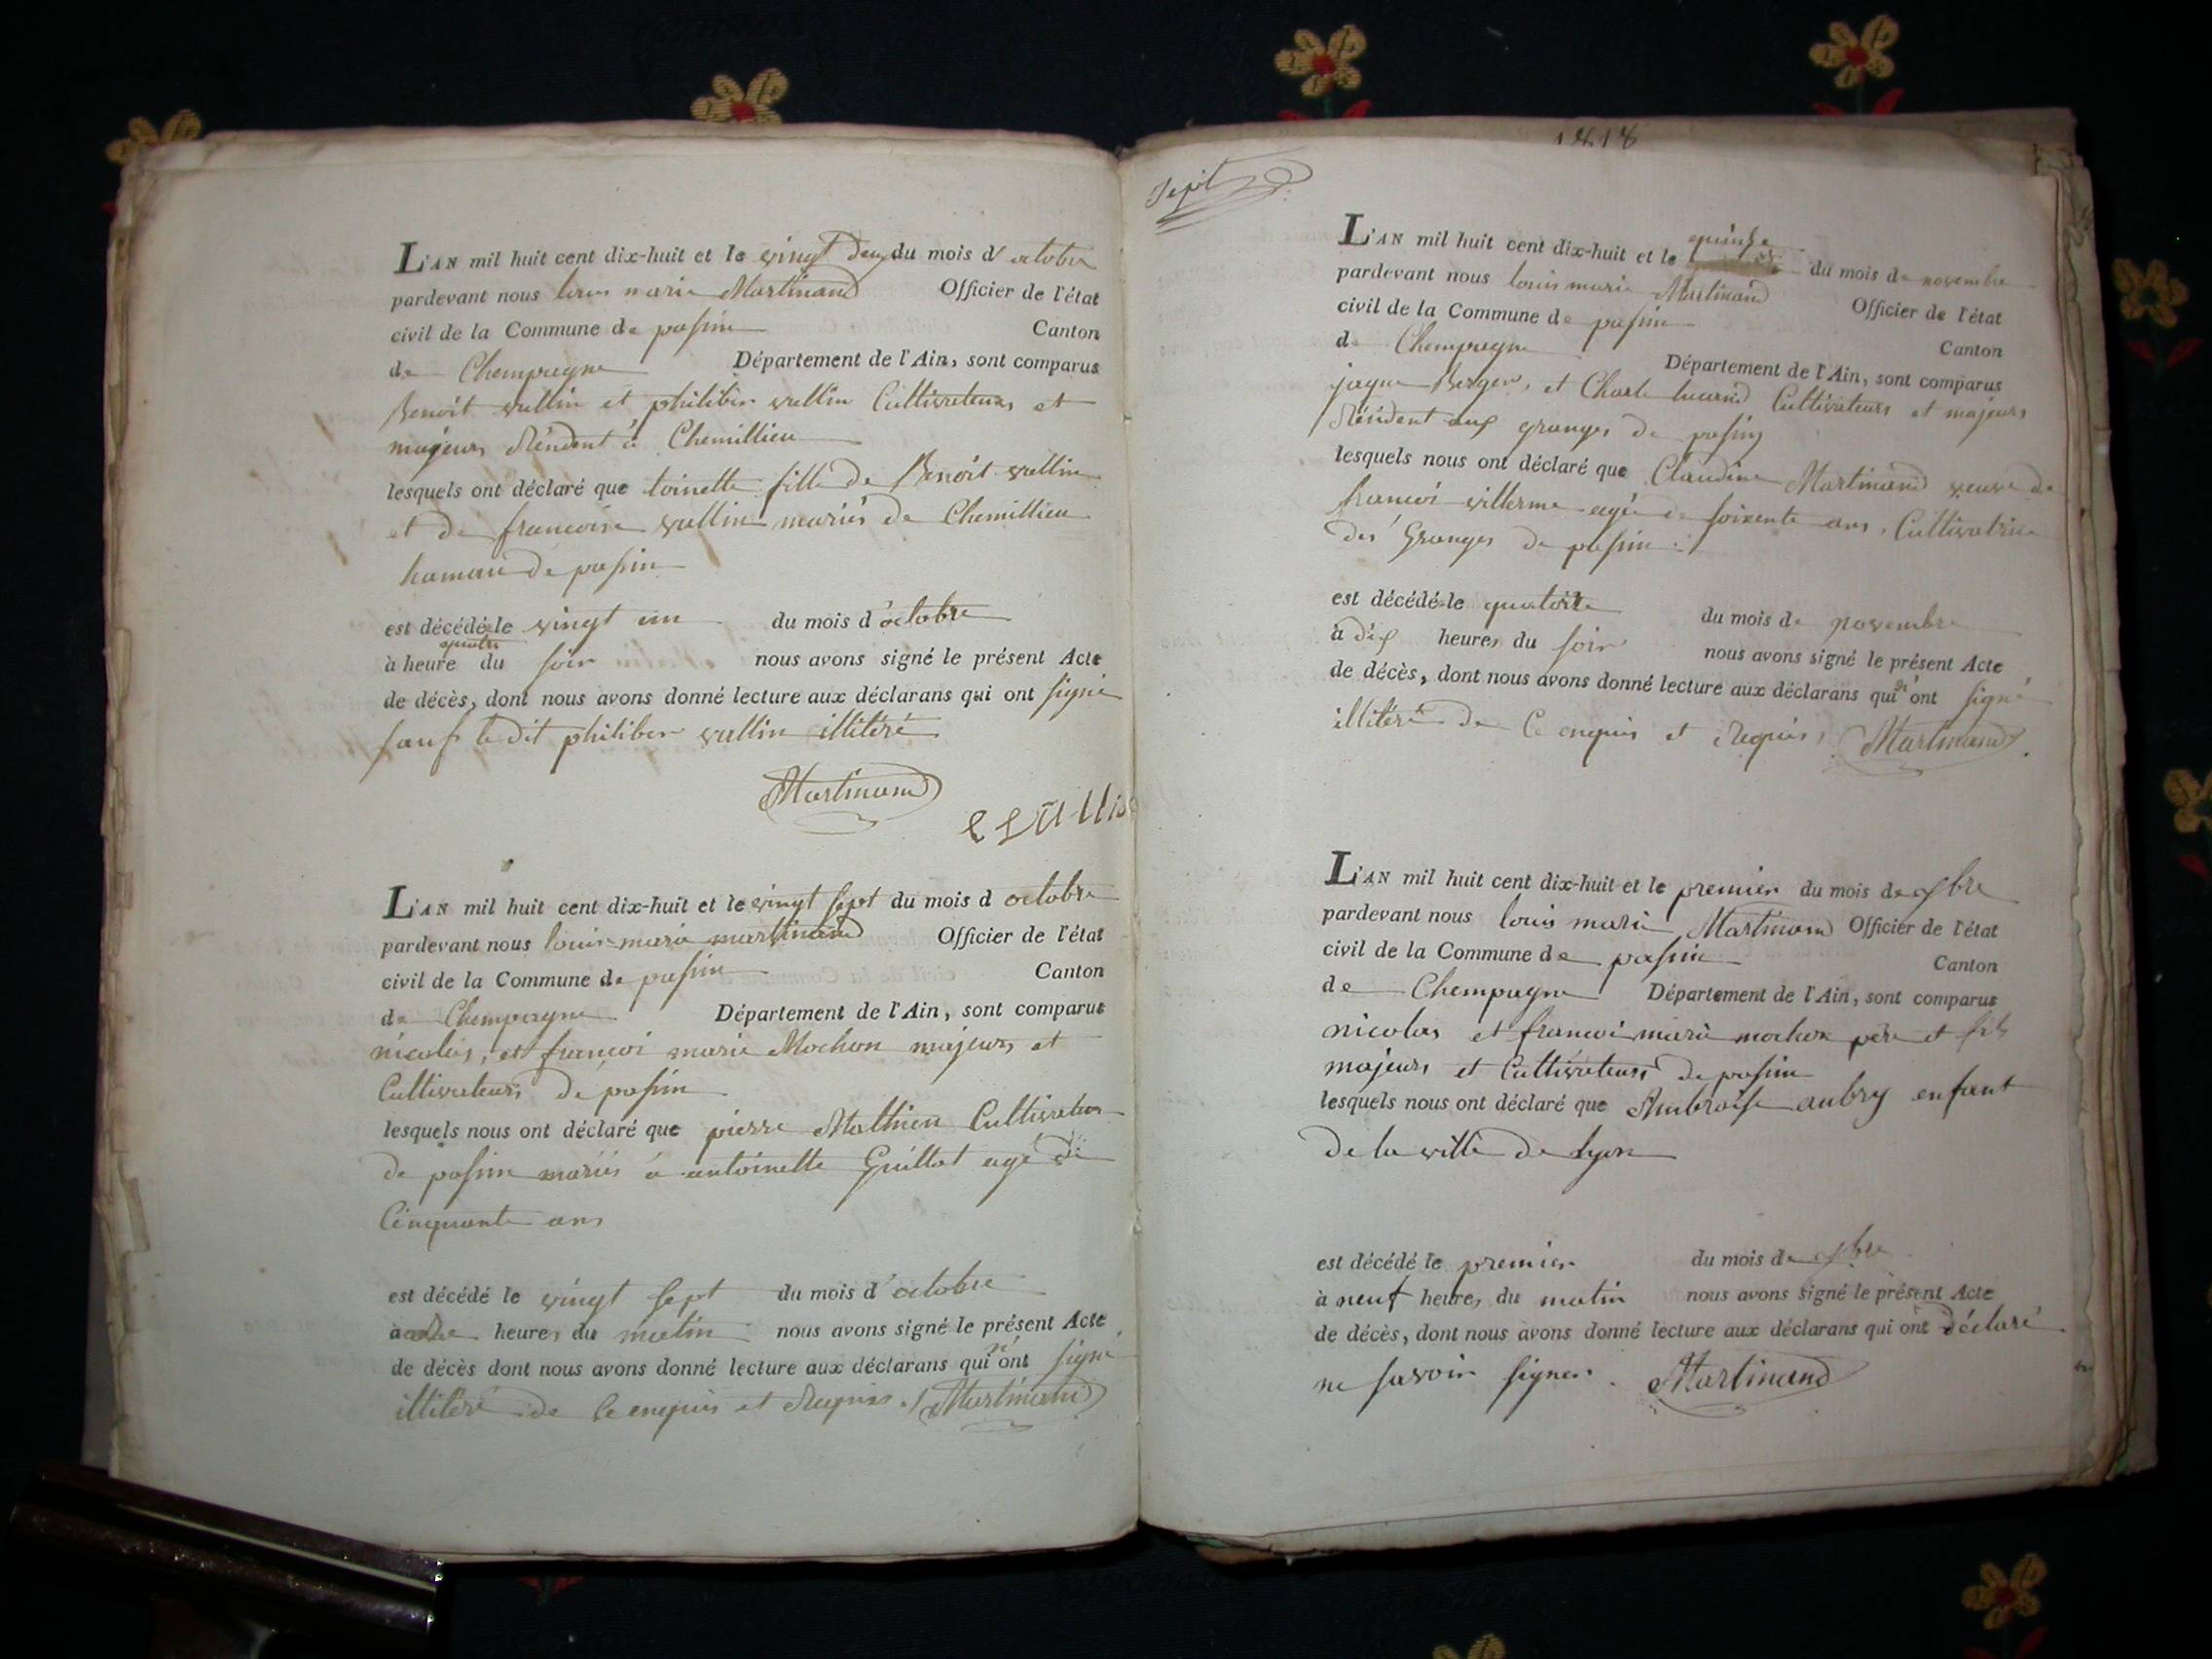 L'AN mil huit cent dix-huit et le vingt deux du mois d'octobre
pardevant nous louis marie Martinand Officier de l'état
civil de la Commune de passin Canton
de Champagne Département de l'Ain, sont comparus
Benoit vullin et philiber vullin Cultivateurs et
majeurs Résident à Chemillieu
lesquels ont déclaré que toinette fille de Benoit vullin
et de francoise vullin mariés de Chemillieu
hameau de passin
est décédée le vingt un du mois d'octobre
quatre
à heure du soir nous avons signé le présent Acte
de décès, dont nous avons donné lecture aux déclarans qui ont signé
sauf le dit philiber vullin illitéré
Martinand
L'AN mil huit cent dix-huit et le vingt sept du mois d octobre
pardevant nous louis marie martinand Officier de l'état
civil de la Commune de passin Canton
de Champagne Département de l'Ain, sont comparus
nicolas, et francoi marie Mochon majeurs et
Cultivateurs de passin
lesquels nous ont déclaré que pierre Mathieu Cultivateur
de passin mariés a antoinette Guillot agé de
Cinquante ans
est décédé le vingt sept du mois d'octobre
à heures du matin nous avons signé le présent Acte
de décès dont nous avons donné lecture aux déclarans qui n'ont signé
illitéré de Ce enquis et Requis. Martinand
1818
Sept
L'AN mil huit cent dix-huit et le quinse du mois de novembre
pardevant nous louis marie Martinand Officier de l'état
civil de la Commune de passin Canton
de Champagne Département de l'Ain, sont comparus
jaque Berger, et Charle Cultivateurs et majeurs
Résident aux granges de passin
lesquels nous ont déclaré que Claudine Martinand veuve de
francoi villerme agée de soixente ans, Cultivatrice
des Granges de passin
est décédée le quatorze du mois de novembre
à dix heures du soir nous avons signé le présent Acte
de décès, dont nous avons donné lecture aux déclarans qui n'ont signé
illitéré de Ce enquis et Requis, Martinand
L'AN mil huit cent dix-huit et le premier du mois de
pardevant nous louis marie Martinand Officier de l'état
civil de la Commune de passin Canton
de Champagne Département de l'Ain, sont comparus
nicolas et francoi marie mochon père et fils
majeurs et Cultivateurs de passin
lesquels nous ont déclaré que Ambroise aubry enfant
De la ville de lyon
est décédé le premier du mois de
à neuf heures du matin nous avons signé le présent Acte
de décès, dont nous avons donné lecture aux déclarans qui ont déclaré
ne savoir signer. Martinand